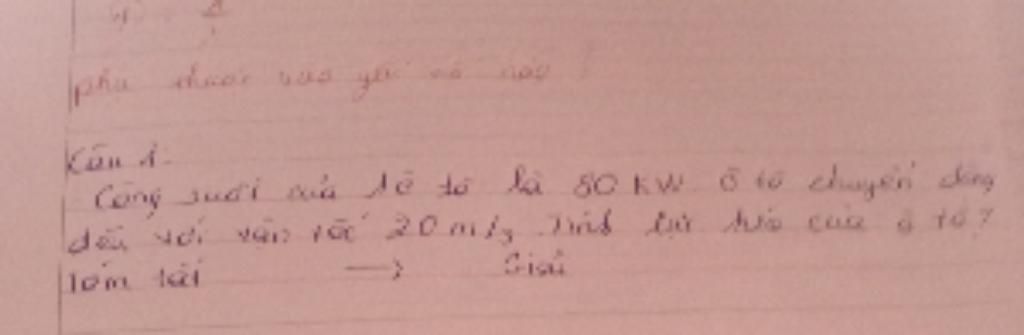 phụ thuộc vào yếu tố nào?
Câu 1.
Công suất của 1 ô tô là 80 KW ô tô chuyển động
đều với vận tốc 20 m/s Tính lực kéo của ô tô?
Tóm tắt → Giải